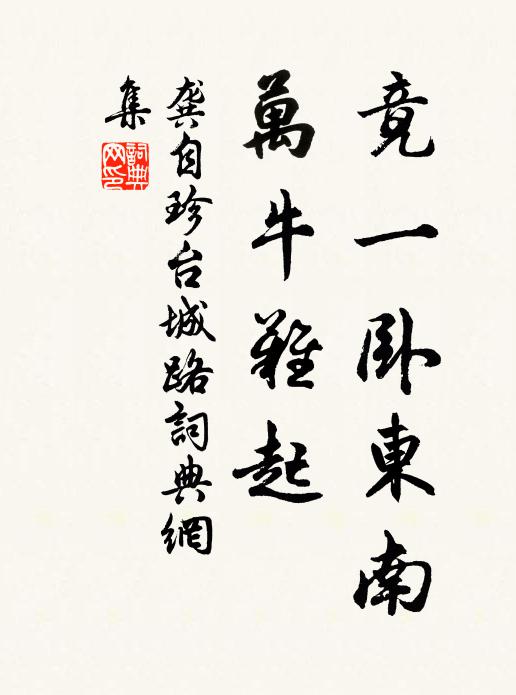 竟一卧東南
萬牛難起
龔自珍台城路詞典網
集
詞典网印